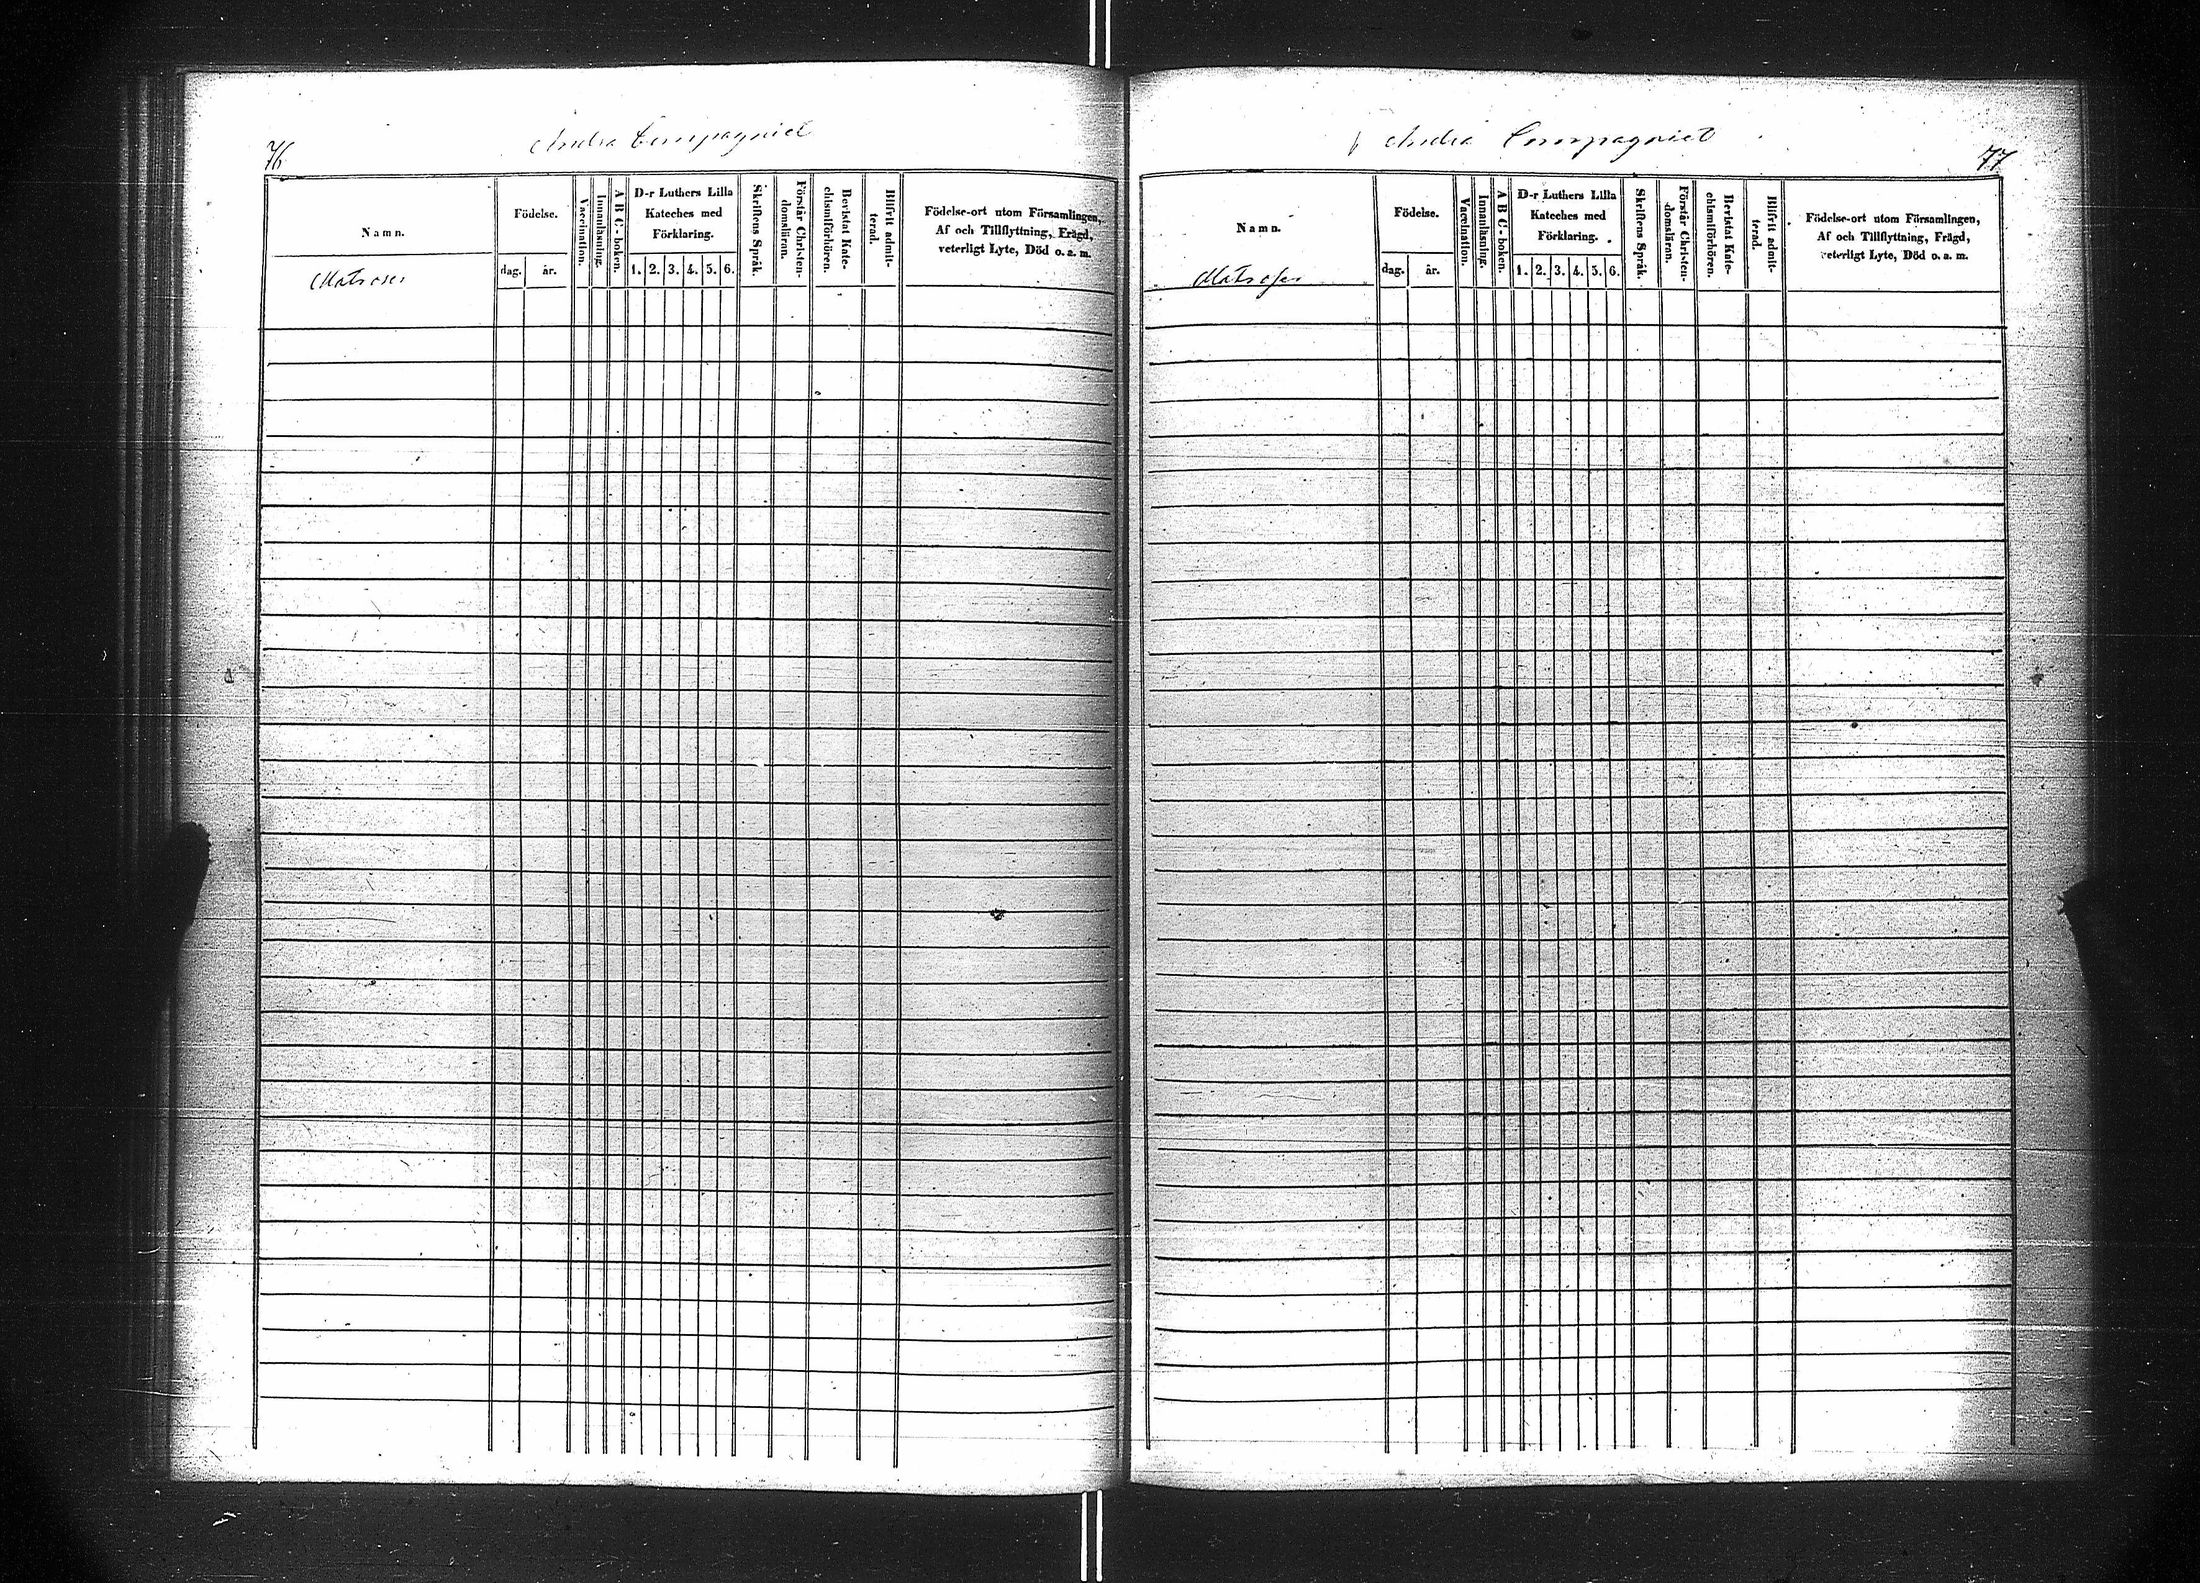 76
Andra Compagniet
Namn.
Födelse.
dag. år.
Vaccination.
Innanläsning.
A B C-boken.
D-r Luthers Lilla
Kateches med
Förklaring.
1. 2. 3. 4. 5. 6.
Skriftens Språk.
Förstår Christen-
domsläran.
Bevistat Kate-
chismiförhören.
Blifvit admit-
terad.
Födelse-ort utom Församlingen,
Af och Tillflyttning, Frägd,
veterligt Lyte, Död o. a. m.
Matroser
Andra Compagniet
77
Namn.
Födelse.
dag. år.
Vaccination.
Innanläsning.
A B C-boken.
D-r Luthers Lilla
Kateches med
Förklaring.
1. 2. 3. 4. 5. 6.
Skriftens Språk.
Förstår Christen-
domsläran.
Bevistat Kate-
chismiförhören.
Blifvit admit-
terad.
Födelse-ort utom Församlingen,
Af och Tillflyttning, Frägd,
veterligt Lyte, Död o. a. m.
Matroser